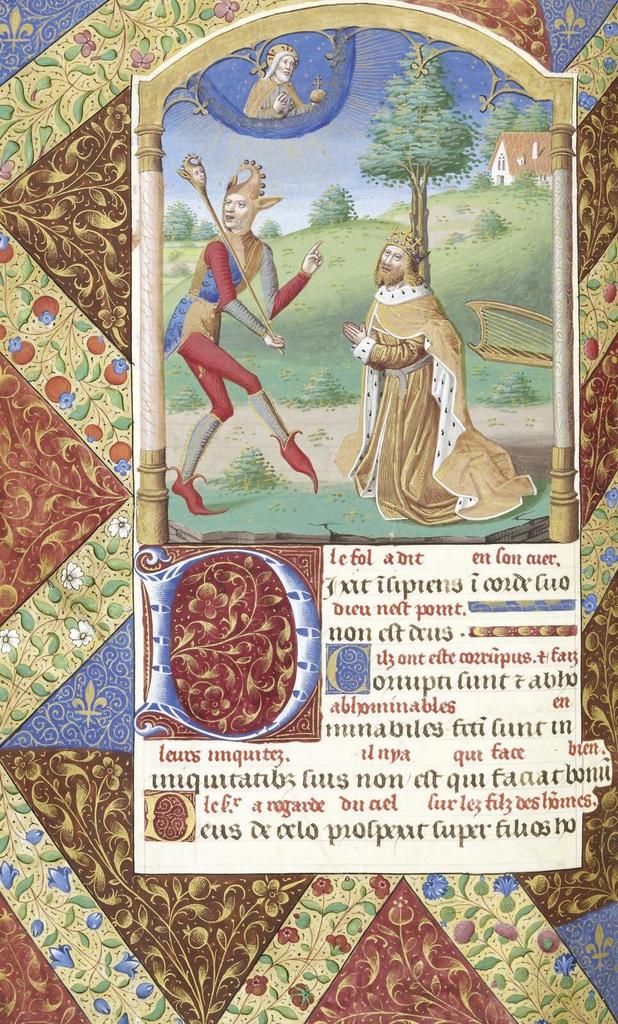 le fol a dit en son cuer.
Dixit ĩsipiens ĩ corde suo
dieu nest point.
non est deus.
ilz ont este corrũpus. ⁊ faiz
Corrupti sunt ⁊ abho
abhominables en
minabiles fcti sunt in
leurs iniquitez. il nya qui face bien.
iniquitatibꝫ suis non est qui faciat bonũ
le sʳ a regarde du ciel sur lez filz des hõmes.
Deus de celo prospexit super filios ho